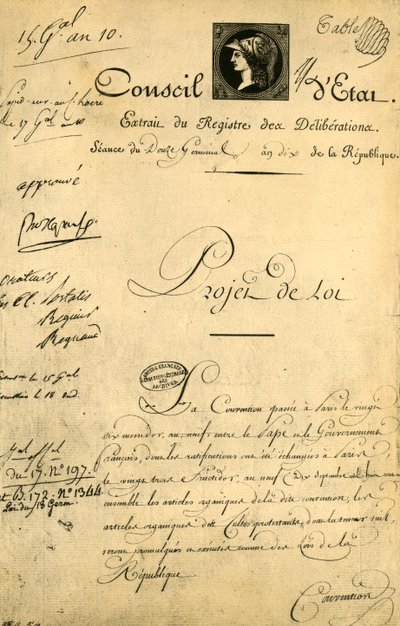 15. Gal an 10.
Table
Conseil d'Etat.
Extrait du Registre des Délibérations.
Séance du Douze Germinal an dix de la République.
le 17 Gal an 10
approuvé
orateurs
les CC. Portalis
Regnier
Regnaud
Projet de Loi
le 18
La Convention passée à Paris le vingt
six messidor, an neuf, entre le Pape et le Gouvernement
français, dont les ratifications ont été échangées à Paris
le vingt trois fructidor, an neuf
ensemble les articles organiques de la dite convention, les
articles organiques des Cultes protestants, dont la teneur suit,
seront promulgués et exécutés comme des Lois de la
République.
du 17. N° 197.
et B. 172. N° 1344
Loi du 18 Germ.
Convention